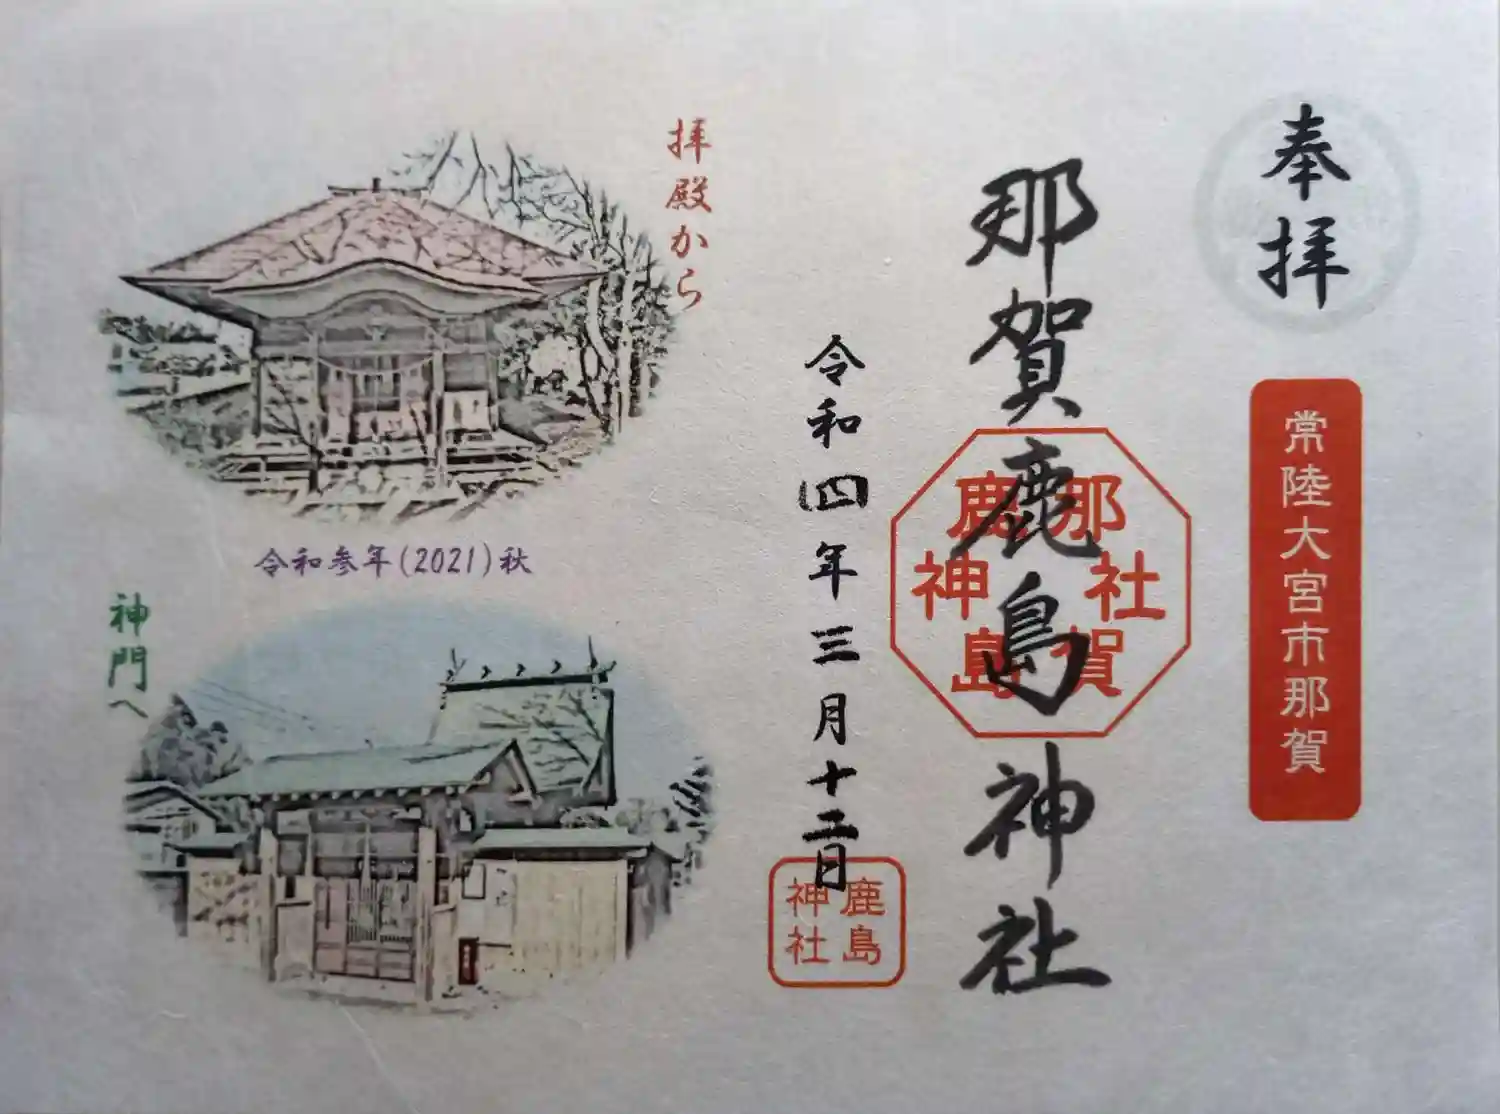 奉拝
常陸大宮市那賀
那賀鹿島神社
那賀鹿島神社
令和四年三月十二日
鹿島
神社
拝殿から
令和参年(2021)秋
神門へ